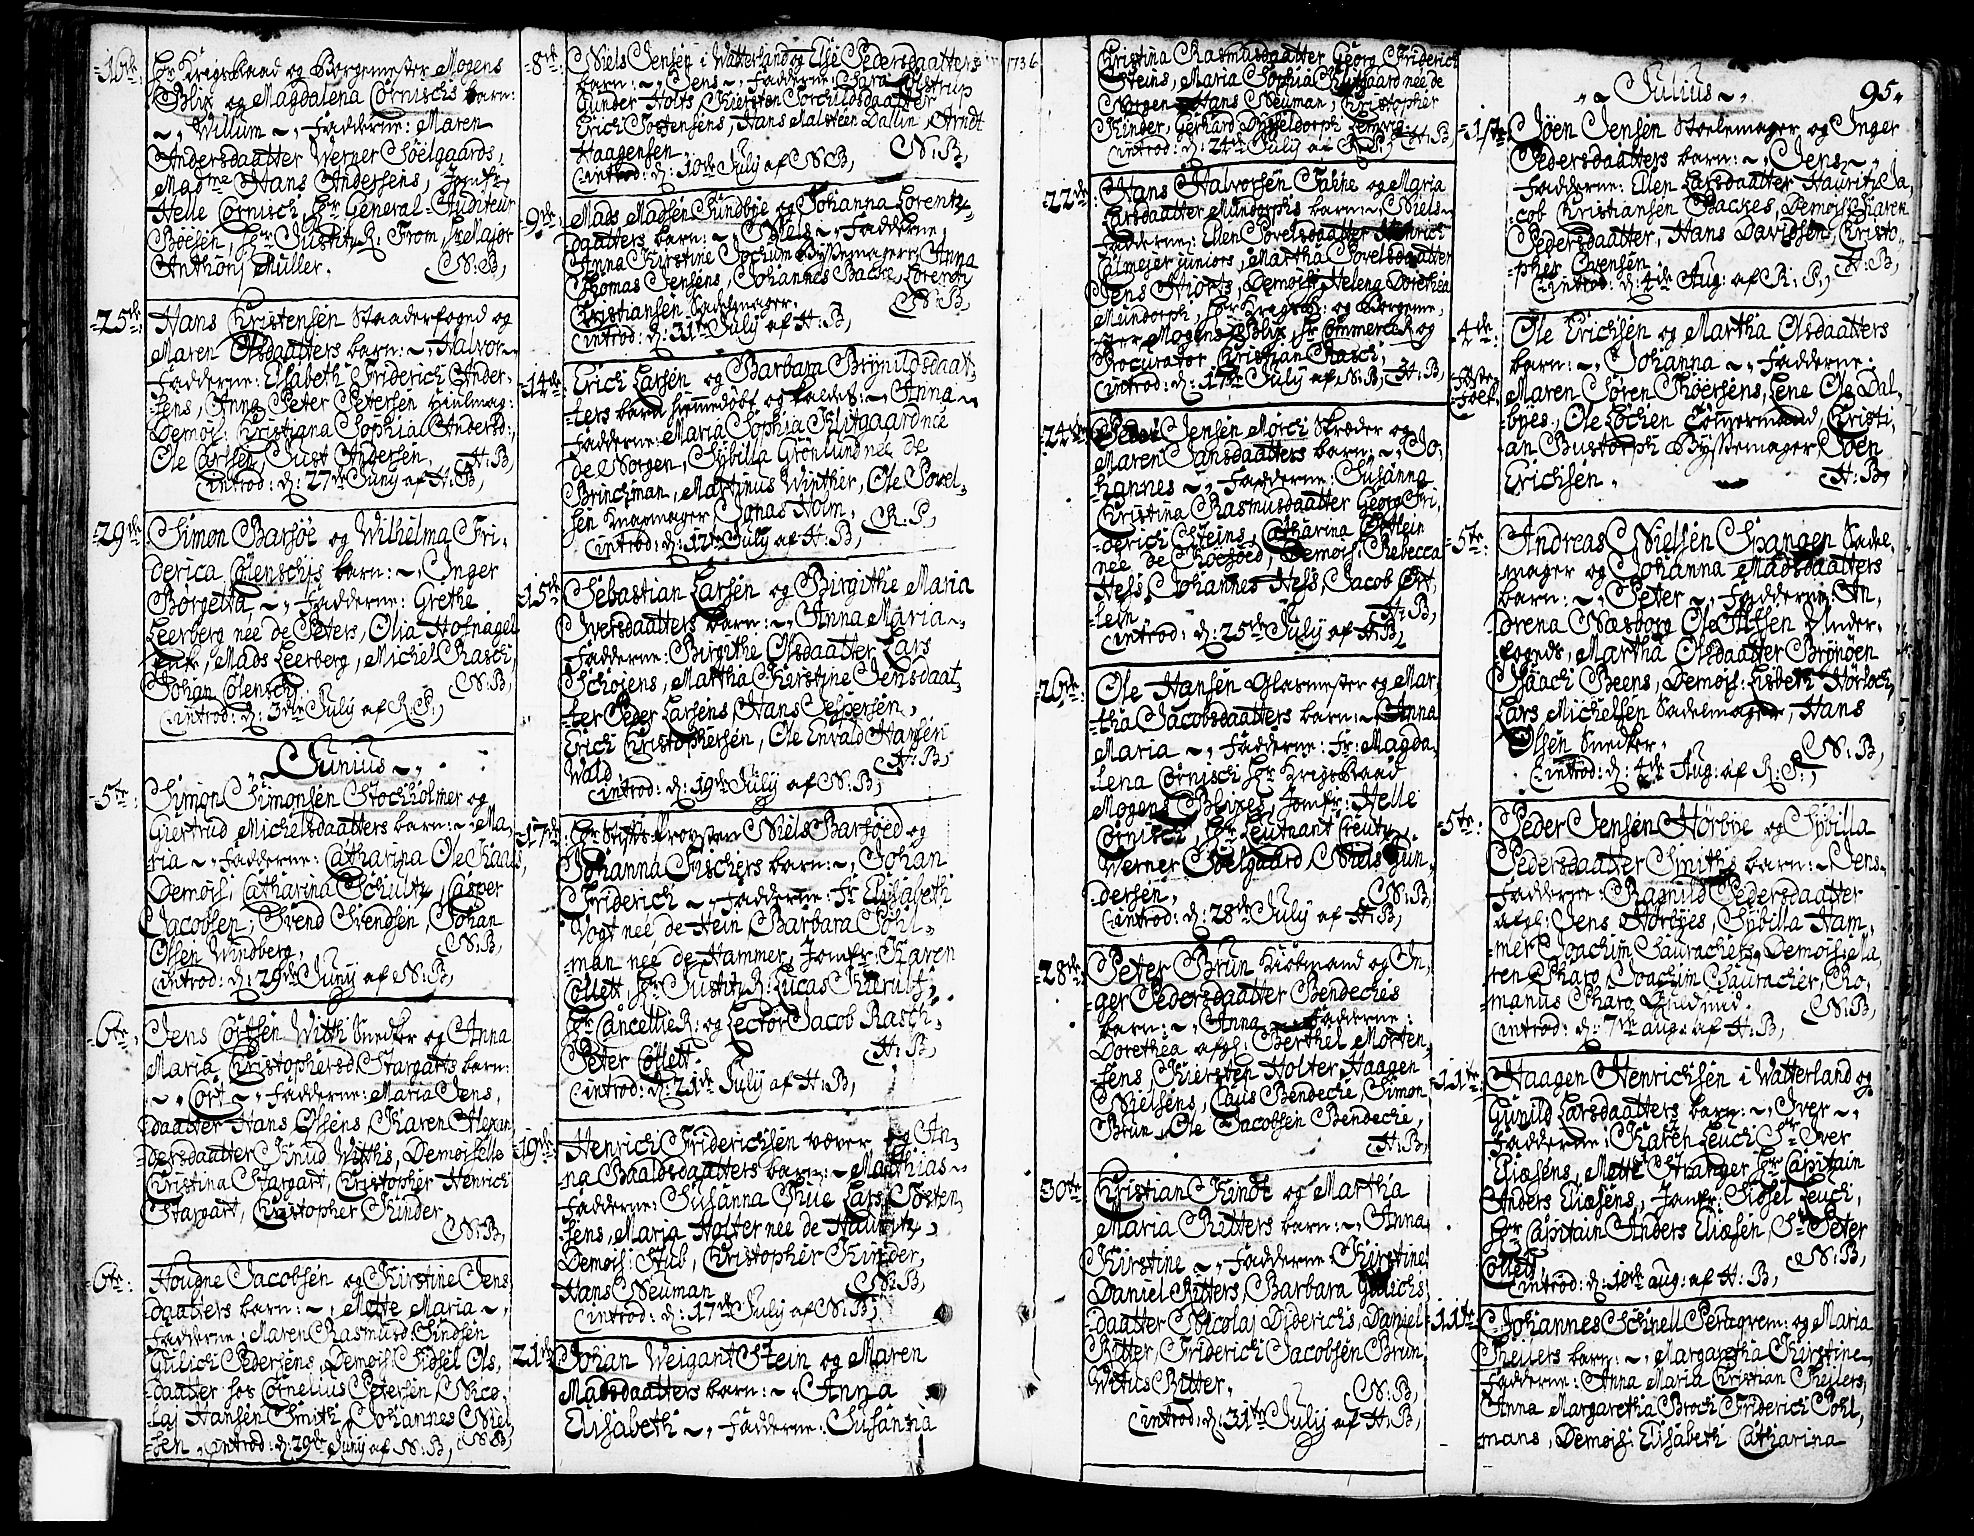 -10de.
Hr Krigs Raad og Borgemester Mogens
Blix og Magdalena Cornischs barn:
~, Willum ~, Fadderne: Maren
Andersdaatter Werner Söelgaards,
Madme Hans Andersens, Jomfr,
Helle Cornisch, Hr General=Auditeur
Böesen, Hr Justitz R: From, Hr Major
Anthonj Müller.
N:B,
-25de:
Hans Christensen Staaderfoged og
Maren Olsdaatters barn: ~, Halvor ~
Fadderne: Elisabeth Friderich Ander,
=sens, Anna Peter Petersen Hiulmag:
Demois: Christiana Sophia Andersd:,
Ole Larsen, Just Andersen. H:B,
introd: d: 27de Juny af H:B,
-29de
Simon Barföe og Wilhelma Fri,
derica Cölenschis barn: ~, Inger
Borgetta, ~, Fadderne: Grethe
Leerberg née de Peters, Olia Hofnagel
Mads Leerberg, Michel Rasch,
Johan Cölensch,
N:B,
introd: d: 3die July af R:P,
~ Junius ~,
-5te:
Simon Simonsen Stockholmer og
Giertrud Michelsdaatters barn: ~, Ma,
ria ~, Fadderne: Catharina Ole Raas,
Demois: Catharina Schultz, Casper
Jacobsen, Svend Svendsen, Johan
Olsen Windberg,
N:B,
introd: d: 29de Juny af N:B,
6te,
Jens Cortsen Witth Snedker og Anna
Maria Christophersd. Stargarts barn:
~, Cort ~, Fadderne: Maria Jens,
daatter Hans Olsens, Karen Alexan
=dersdaatter Knud Witths, Demoiselle
Christina Stargart, Christopher Henrich
Stargart, Christopher Kinder,
N:B,
6te:
Hougne Jacobsen og Kirstine Jens
daatters barn: ~, Mette Maria ~,
Fadderne: Maren Rasmusd:
Gulich Pedersens, Demois: Sidsel Ols,
=daatter hos Cornelius Petersen, Nico,
laj Hansen Smith, Johannes Niel
=sen, introd: d: 29de Juny af N:B, N:B,
-8de:
Niels Jensen i Watterland og Else Pedersdaatters
barn: ~, Jens ~, Fadderne: Sara Olstrup
Gunder Holts, Kiersten Torchildsdaatter
Erich Tostensens, Hans Malsteen Dallin, Arndt
Haagensen.
N:B,
introd: d: 10de July af N:B,
9de
Mads Madsen Sundbye og Johanna Lorentz,
daatters barn: ~, Niels ~, Fadderne,
Anna Kirstine Jochum Byssemagers, Anna
Thomas Jensens, Johannes Backe, Lorentz
Christiansen Sadelmager.
N:B,
introd: d: 31te July af H:B,
-14de
Erich Larsen og Barbara Brynildsdaat,
ters barn hiemmedöbt og kaldet: ~, Anna ~
Fadderne: Maria Sophia Klitgaard née
de Norgen, Sybilla Grönlund née de
Brinchman, Martinus Winther, Ole Povel,
sen Knapmager, Jonas Holm,
R:P,
introd: d: 12te July af H:B,
-15de
Sebastian Larsen og Birgithe Maria
Iversdaatters barn: ~, Anna Maria ~
Fadderne: Birgithe Olsdaatter Lars
Schöiens, Martha Kirstine Jensdaat,
ter Peder Larsens, Hans Jespersen,
Erich Christophersen, Ole Envald Hansen
Wald.
H:B,
introd: d: 19de July af N:B,
-17de
Hr Stifts Provsten Niels Barföed og
Johanna Fischers barn: ~, Johan
Friderich ~, Fadderne: Fr Elisabeth
Vogt née de Hein, Barbara Pohl,
man née de Hammer, Jomfr: Karen
Collett, Hr Justitz R: Lucas Kierulf,
Hr Cancellie R: og Lector Jacob Rasch,
Peter Collett.
H:B,
introd: d: 21de July af H:B,
19de
Henrich Friderichsen væver og An,
na Baaldsdaatters barn: ~, Matthias ~
Fadderne: Susanna Thue Lars Tosten,
sens, Maria Holter née de Hauritz,
Demois: Hub, Christopher Kinder,
Hans Neuman
N:B,
introd: d: 17de July af N:B,
21de
Johan Weigant Stein og Maren
Madsdaatters barn: ~, Anna
Elisabeth ~, Fadderne: Susanna
1736
Christina Rasmusdaatter Georg Friderich
Steins, Maria Sophia Klitgaard née de
Norgen, Hans Neuman, Christopher
Kinder, Gerhard Dysseldorph
introd: d: 24de July af R:P, H:B,
22de
Hans Halvorsen Tahne og Maria
Larsdaatter Mundorphs barn: ~, Niels ~
Fadderne: Ellen Povelsdaatter Henrich
Calmejer juniors, Martha Povelsdaatter
Jens Hiorts, Demois: Helena Dorethea
Mundorph, Hr Krigs R: og Borgeme,
=ster Mogens Blix, Hr Commerce R og
Procurator Christian Rasch,
introd: d: 17de July af N:B, H:B,
-24de
Peder Jensen Mörch Skræder og
Maren Jansdaatters barn: ~, Jo,
=hannes ~, Fadderne: Susanna
Christina Rasmusdaatter Georg Fri,
=derich Steins, Catharina Ortlein
née de Röefsöed, Demois: Rebecca
Hess, Johannes Hess, Jacob Ort,
lein
H:B,
introd: d: 25de July af H:B,
-26de
Ole Hansen Glasmester og Mar,
tha Jacobsdaatters barn: ~, Anna
Maria ~, Fadderne: Fr: Magda,
lena Cornisch Hr Krigs Raad
Mogens Blixes, Jomfr: Helle
Cornisch, Hr Leutnant Creutz,
Werner Söelgaard, Niels Gun,
dersen,
N:B,
introd: d: 28de July af H:B,
-28de
Peter Brun Kiöbmand og In,
ger Pedersdaatter Bendeches
barn: ~, Anna ~, Fadderne:
Dorethea afgl: Berthel Morten,
sens, Kiersten Holter, Haagen
Nielsens, Claus Bendeche, Simon
Brun, Ole Jacobsen Bendeche,
H:B,
30te
Christian Kindt og Martha
Maria Ritters barn: ~, Anna
Kirstine ~, Fadderne: Kirstine
Daniel Ritters, Barbara Gulichs
daatter Nicolaj Diderichs, Daniel
Ritter, Friderich Jacobsen Brun,
Witus Ritter,
N:B,
introd: d: 31te July af H:B,
~ Julius ~,
95.
-1ste
Jöen Jensen Stolemager og Inger
Pedersdaatters barn: ~, Jens ~,
Fadderne: Ellen Larsdaatter Hauritz Ja,
cob Christiansen Backes, Demois: Karen
Pedersdaatter, Hans Davidsen, Christo,
=pher Evensen
H:B,
introd: d: 4de Aug: af R:P,
-4de
Ole Erichsen og Martha Olsdaatters
barn: ~, Johanna ~, Fadderne:
Maren Sören Thöersens, Lene Ole Dal,
byes, Ole Lochen Tömmermand, Christi,
an Bustorph Byssemager, Jöen
Erichsen.
H:B,
-5te:
Andreas Nielsen Spangen Sadel,
mager og Johanna Madsdaatters
barn: ~, Peter ~, Fadderne: An,
drena Næsborg Ole Olsen Under,
fogeds, Martha Olsdaatter Brönöen
Isaach Beens, Demois: Lisbeth Hörloch,
Lars Michelsen Sadelmager, Hans
Olsen Snedker.
N:B,
introd: d: 4de Aug: af R:P,
5te:
Peder Jensen Hörbye og Sybilla
Pedersdaatter Smiths barn: ~, Jens ~
Fadderne: Ragnild Pedersdaatter
afgl: Jens Hörbyes, Sybilla Ham,
mer Joachim Laurachers, Demois: Ma,
ren Pharo, Joachim Lauracher, Ro,
manus Pharo, Gudmund.
N:B,
introd: d: 7de aug: af H:B,
-11te
Haagen Henrichsen i Watterland og
Gunild Larsdaatters barn: ~, Iver ~,
Fadderne: Karen Leuch Sr Iver
Eliesens, Mette Stranger Hr Capitain
Anders Eliesens, Jomfr: Sidsel Leuch,
Hr Capitain Anders Eliesen, Sr Peter
Collett,
N:B,
introd: d: 10de aug: af H:B,
-11te
Johannes Schinell og Maria
Theilers barn: ~, Margaretha Kirstine ~
Fadderne: Anna Maria Christian Theilers,
Anna Margaretha Broch Friderich Pohl,
mans, Demois: Elisabeth Catharina